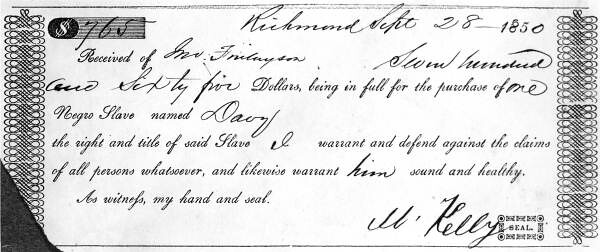 $ 765 Richmond Sept 28 - 1850
Received of Jno. Finlayson Seven hundred
and Sixty five Dollars, being in full for the purchase of one
Negro Slave named Davy
the right and title of said Slave I warrant and defend against the claims
of all persons whatsoever, and likewise warrant him sound and healthy.
As witness, my hand and seal.
M' Kelly SEAL.